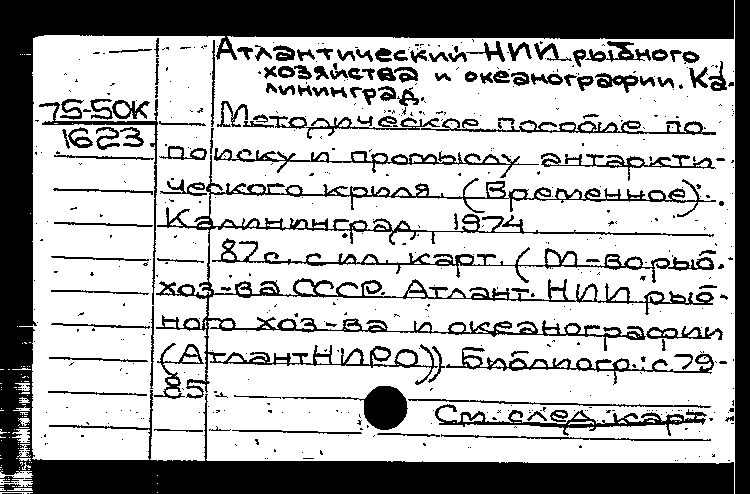 Атлантический НИИ рыбного
хозяйства и океанографии. Ка-
лининград.
75-50К
1623.
Методическое пособие по
поиску и промыслу антаркти-
ческого криля. (Временное).
Калининград, 1974.
87с. с ил., карт. (М-во рыб.
хоз-ва СССР. Атлант. НИИ рыб-
ного хоз-ва и океанографии
(АтлантНИРО)). Библиогр.: с 79-
85
См. след. карт.